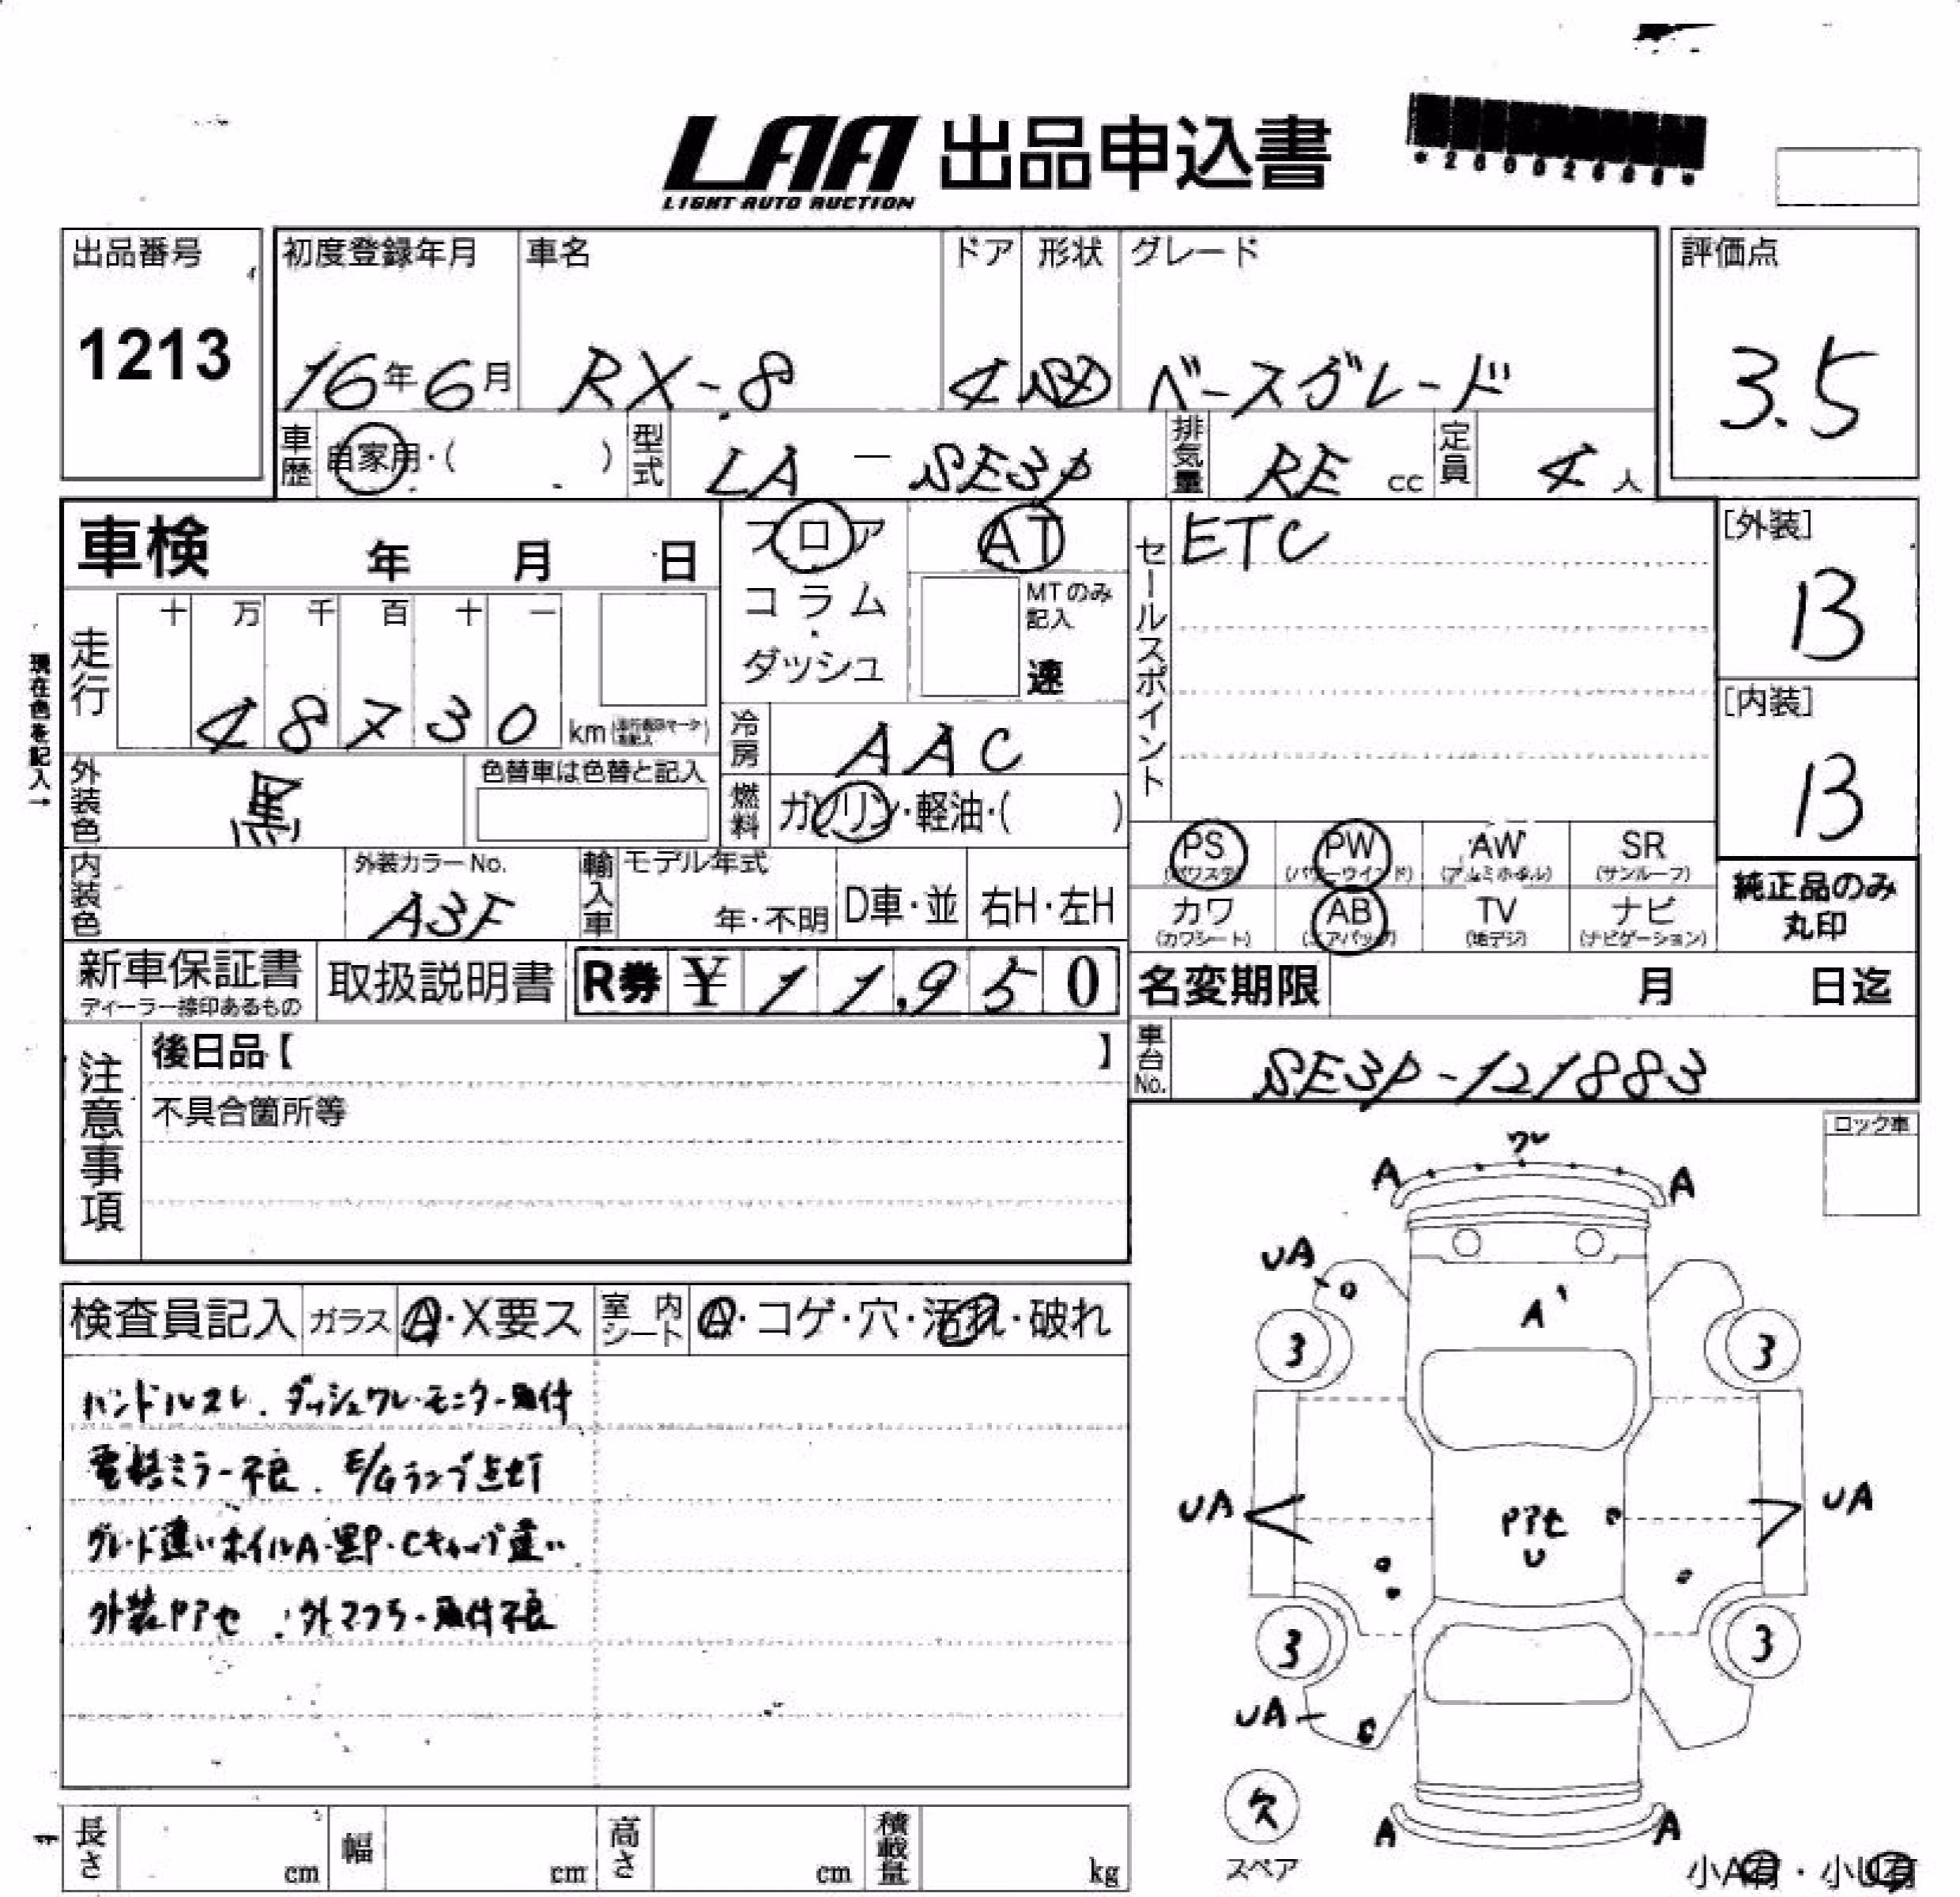 LAA 出品申込書
LIGHT AUTO AUCTION
出品番号
1213
初度登録年月
16年6月
車名
RX-8
ドア
4
形状
SD
グレード
ベースグレード
評価点
3.5
車歴
自家用・( )
型式
LA - SE3P
排気量
RE cc
定員
4人
車検 年 月 日
フロア
コラム
ダッシュ
AT
MTのみ記入
速
セールスポイント
ETC
[外装]
B
[内装]
B
現在色を記入→
走行
十 万 千 百 十 一
4 8 7 3 0 km
冷房
AAC
外装色
黒
色替車は色替と記入
燃料
ガソリン・軽油・( )
PS
(パワステ)
PW
(パワーウインド)
AW
(アルミホイル)
SR
(サンルーフ)
カワ
(カワシート)
AB
(エアバッグ)
TV
(地デジ)
ナビ
(ナビゲーション)
純正品のみ
丸印
内装色
外装カラーNo.
A3F
輸入車
モデル年式
年・不明
D車・並
右H・左H
新車保証書
ディーラー捺印あるもの
取扱説明書
R券 ¥ 11,950
名変期限 月 日迄
車台No.
SE3P-121883
注意事項
後日品【 】
不具合箇所等
ロック車
検査員記入
ガラス
A・X要ス
室内シート
A・コゲ・穴・汚れ・破れ
ハンドルスレ.ダッシュワレ・モニター取付
電格ミラー不良.E/Gランプ点灯
グレード違いホイルA・黒P・Cキャップ違い
外装Pアセ 外マフラー取付不良
ワレ
A A
UA
A'
3 3
UA UA
Pアセ
U
3 3
UA
欠
スペア
A A
小A有・小U有
長さ cm
幅 cm
高さ cm
積載量 kg